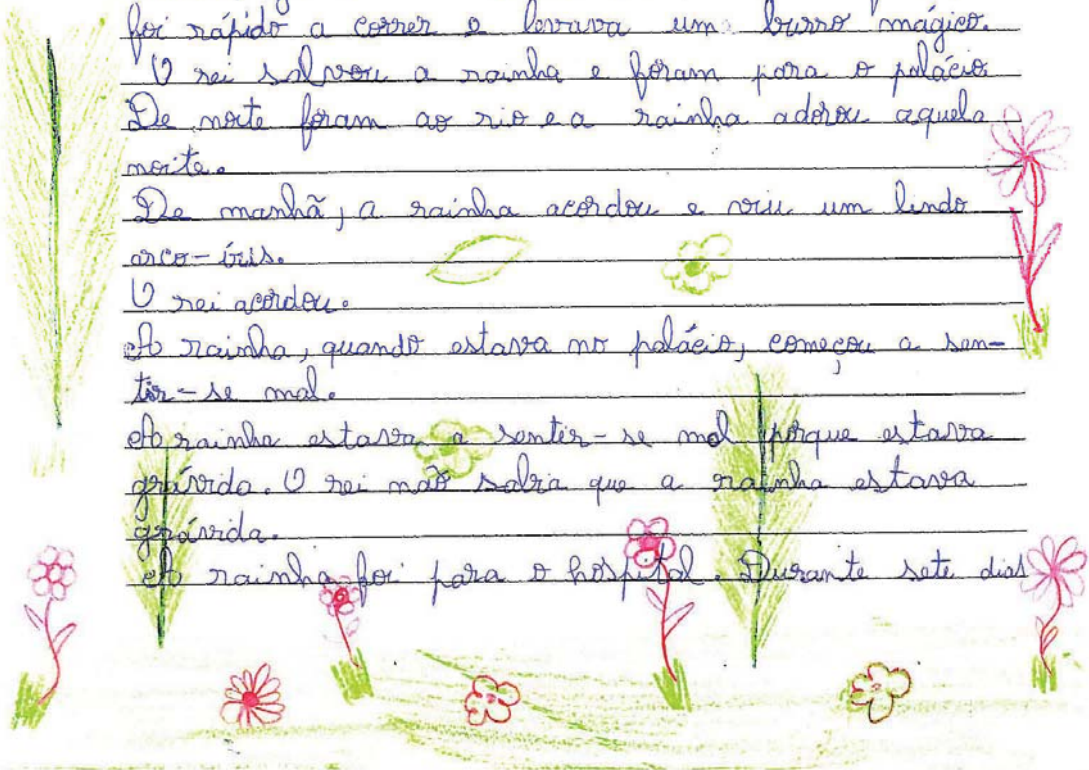 foi rápido a correr e levava um burro mágico.
O rei salvou a rainha e foram para o palácio
De noite foram ao rio e a rainha adorou aquela
noite.
De manhã, a rainha acordou e viu um lindo
arco-íris.
O rei acordou.
A rainha, quando estava no palácio, começou a sen-
tir-se mal.
A rainha estava a sentir-se mal porque estava
grávida. O rei não sabia que a rainha estava
grávida.
A rainha foi para o hospital. Durante sete dias